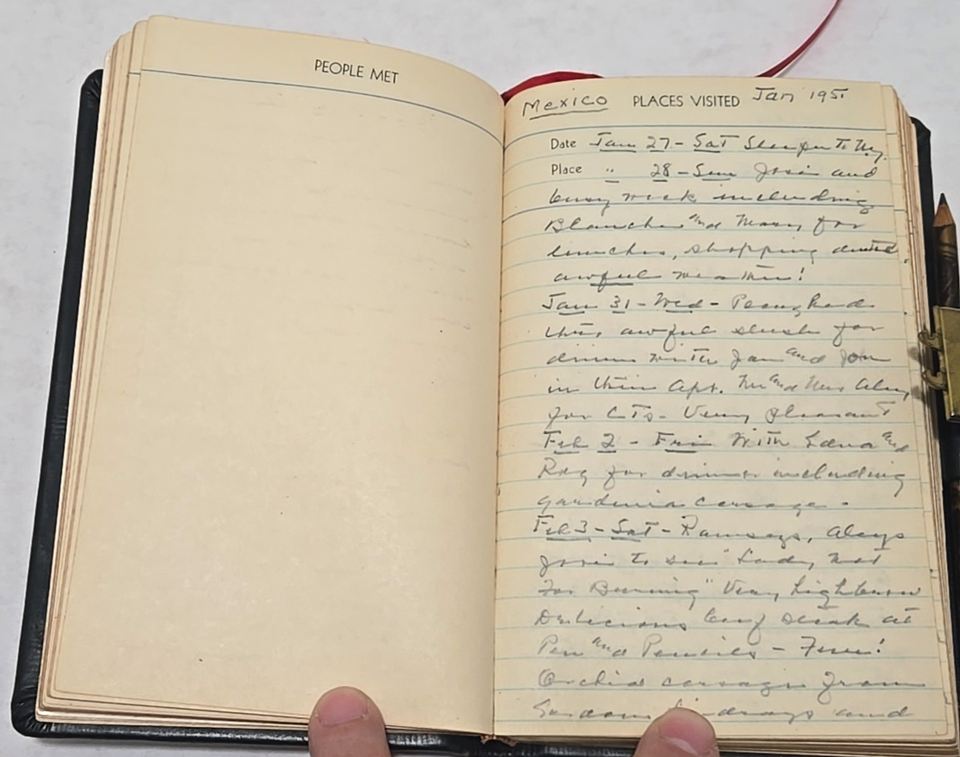 PEOPLE MET
Mexico PLACES VISITED Jan 1951
Date Jan 27 - Sat Sleeper to N.Y.
Place " 28 - Sun Josie and
busy week including
Blanche and Mary for
lunches, shopping
awful weather!
Jan 31 - Wed - Ploughed
thru awful slush for
dinner with Jan and Jon
in their Apt. Mr and Mrs Alsop
for CTs - Very pleasant
Feb 2 - Fri With Edna and
Ray for dinner including
gardenia corsage -
Feb 3 - Sat - Ramsays, Alsops
Josie to see "Lady Not
For Burning" Very highbrow
Delicious beef steak at
Pen and Pencils - Fun!
Orchid corsage from
and